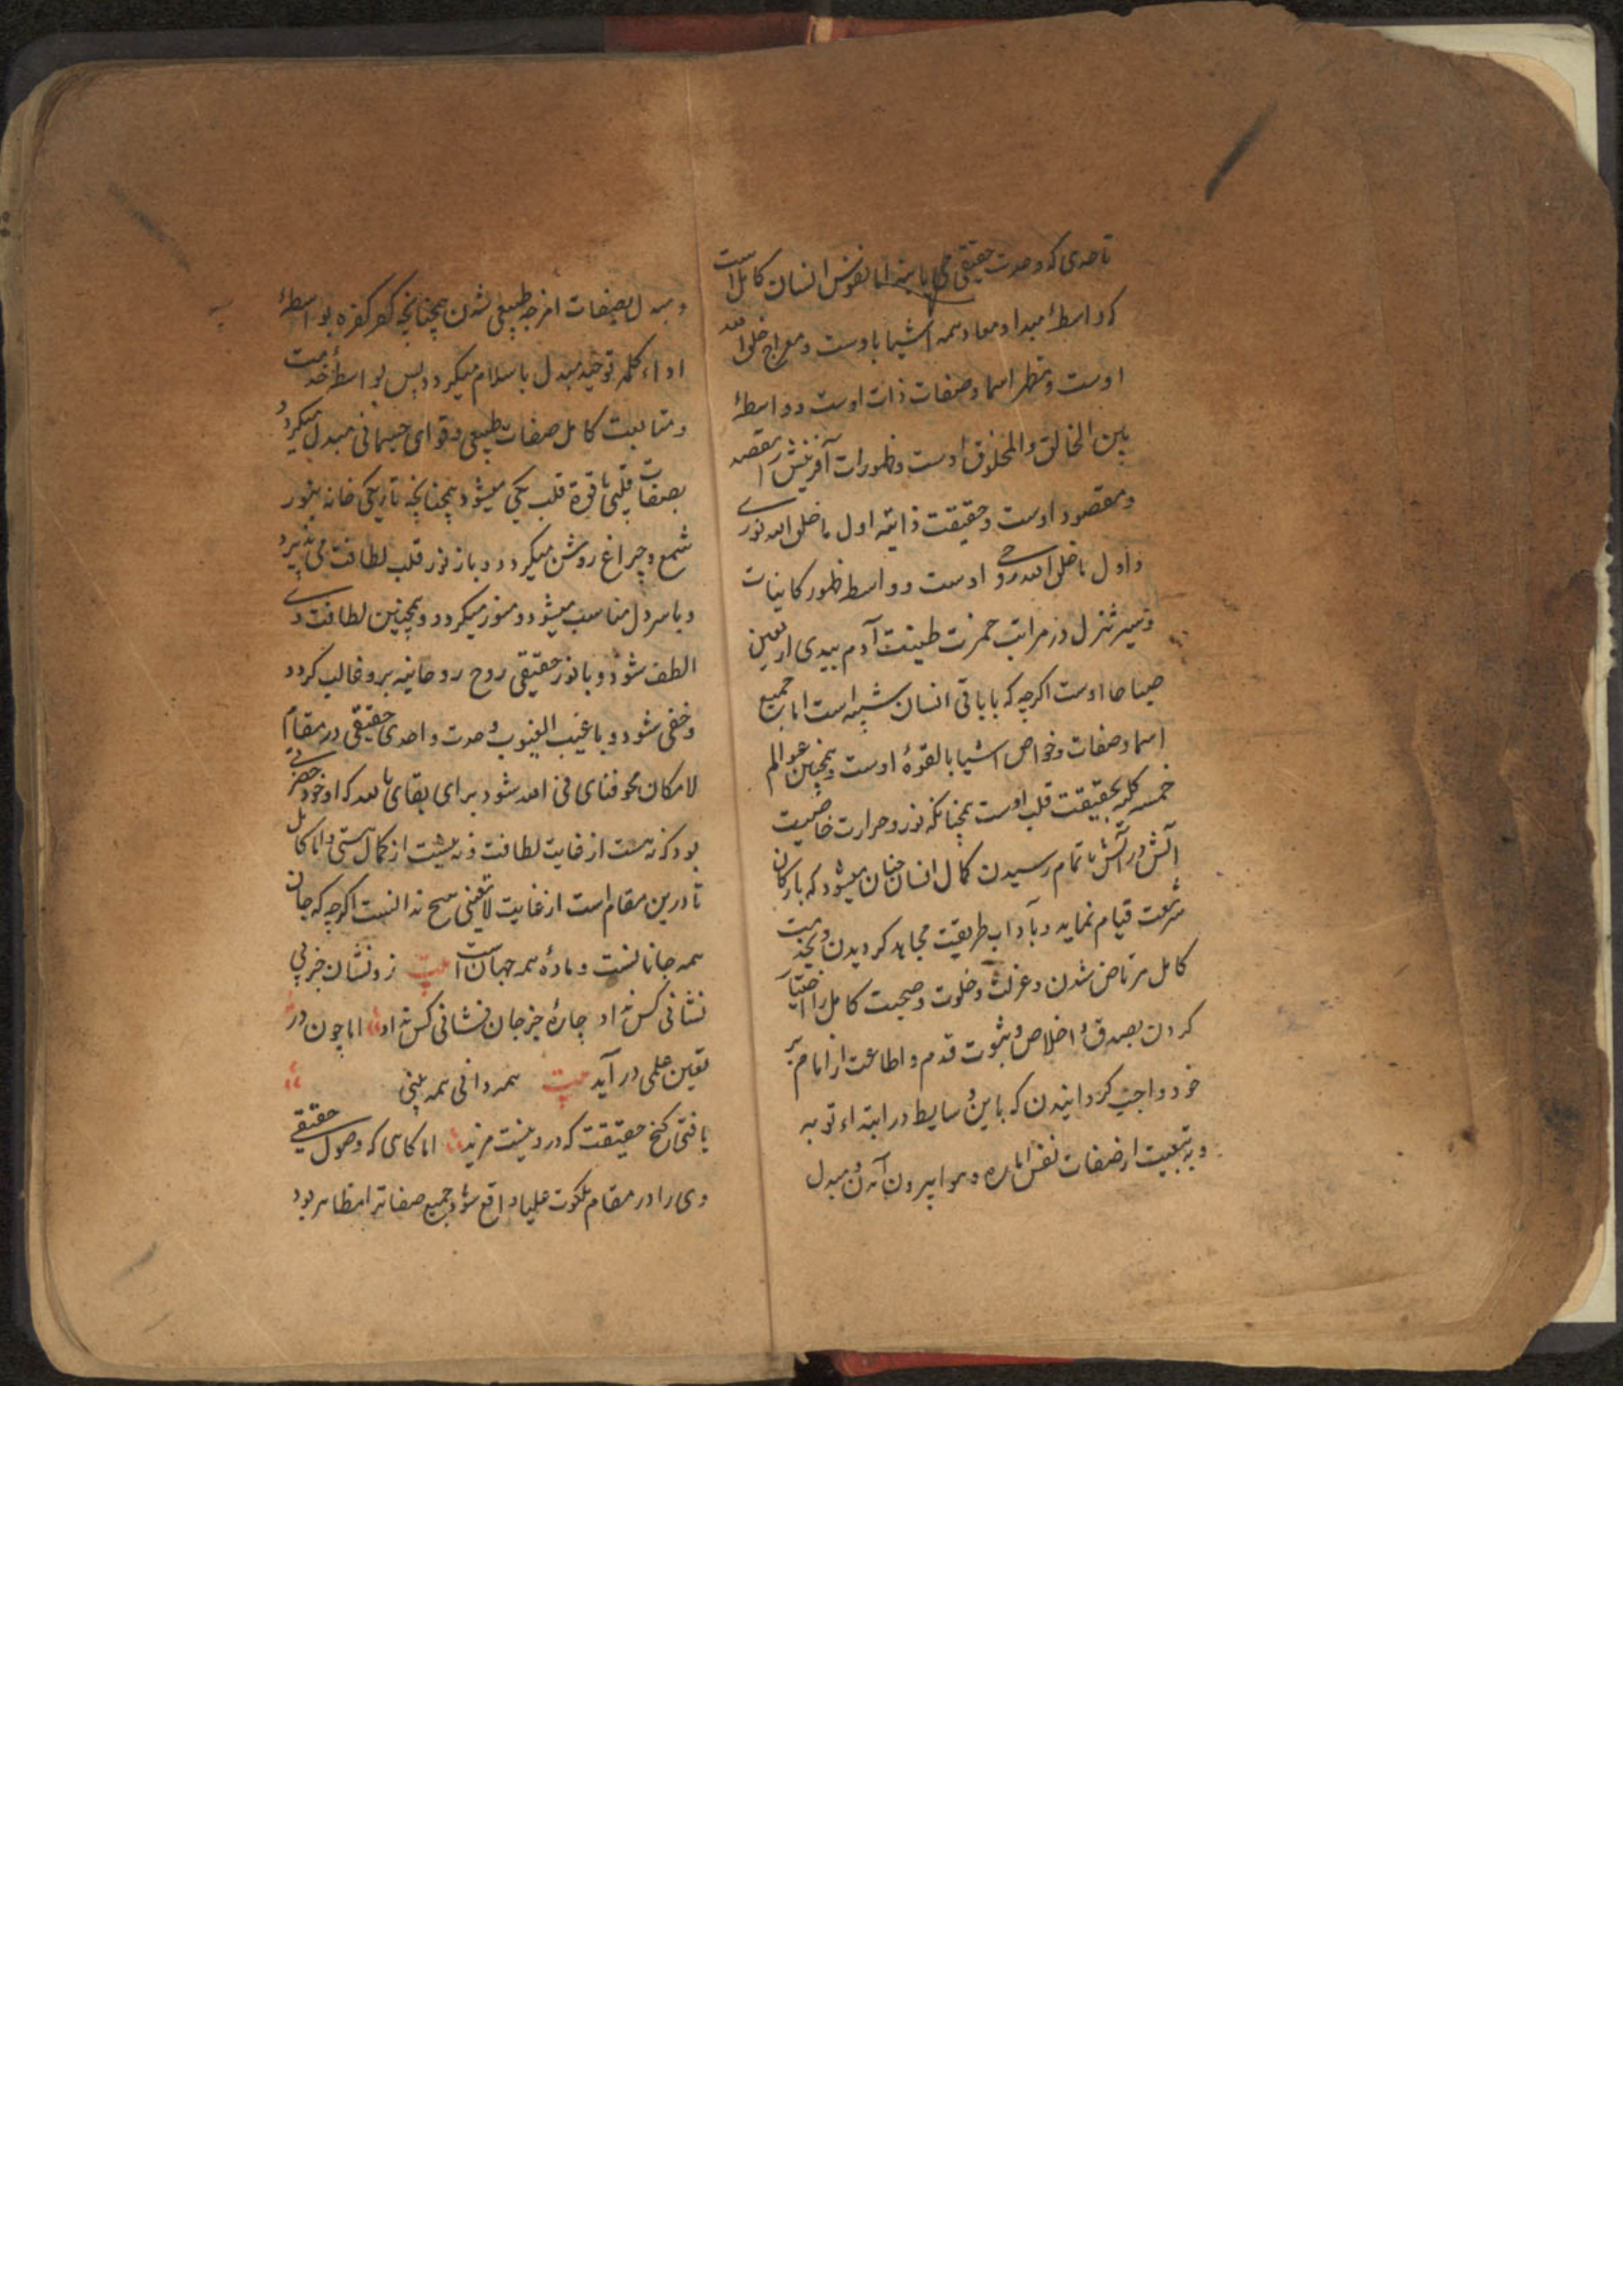 تا حدی که وحدت حقیقی می یابند اما نفوس انسان کامل است
که واسطهٔ مبدا و معاد همه اشیا باوست و معراج خلق الله
اوست و مظهر اسما و صفات ذات اوست و واسطهٔ
بین الخالق والمخلوق اوست و ظهورات آفرینش را مقصد
و مقصود اوست و حقیقت ذاتیه اول ما خلق الله نوری
و اول ما خلق الله روحی اوست و واسط ظهور کاینات
و سیر تنزل در مراتب خمرت طینت آدم بیدی اربعین
صباحا اوست اگرچه که با باقی انسان شبیه است اما جمیع
اسما و صفات و خواص اشیا بالقوهٔ اوست و همچنین عوالم
خمسه کلیه بحقیقت قلب اوست همچنانکه نور و حرارت خاصیت
آتش در آتش با تمام رسیدن کمال انسان چنان میشود که بارکان
شریعت قیام نماید و بآداب طریقت مجاهد گردیدن و بخدمت
کامل مرتاض شدن و عزلت و خلوت و صحبت کامل را اختیار
کردن بصدق و اخلاص و ثبوت قدم و اطاعت از امام بر
خود واجب گردانیدن که باین وسایط در ابتداء توبه
و به تبعیت از صفات نفس اماره و هوا بیرون آمدن و مبدل
و مبدل بصفات امزجه طبیعی شدن همچنانچه کفر کفره بواسطهٔ
اداء کلمه توحید مبدل باسلام میگردد پس بواسطهٔ خدمت
و متابعت کامل صفات طبیعی و قوای جسمانی مبدل میگردد
بصفات قلبی تا قوة قلب یکی میشود همچنانچه تاریکی خانه بنور
شمع و چراغ روشن میگردد و باز نور قلب لطافت می پذیرد
و با سر دل مناسب میشود و منور میگردد و همچنین لطافت وی
الطف شود و با نور حقیقی روح روحانیه برو غالب گردد
و خفی شود و با غیب الغیوب وحدت واحدی حقیقی در مقام
لامکان محو فنای فی الله شود برای بقای بالله که او خود
بود که نه هست از غایت لطافت و نه نیست از کمال هستی و اما کامل
تا درین مقام است از غایت لا تعینی هیچ ندانست اگرچه که جان
همه جانانست و مادهٔ همه جهان است بیت زو نشان جز بی
نشانی کس نداد چارهٔ جز جان فشانی کس نداد اما چون در
تعین علمی در آید بیت همه دانی همه بینی
یافتی گنج حقیقت که درو نیست مزید اما کاسی که وصول حقیقی
وی را در مقام ملکوت علیا واقع شود جمیع صفاترا مظاهر بود